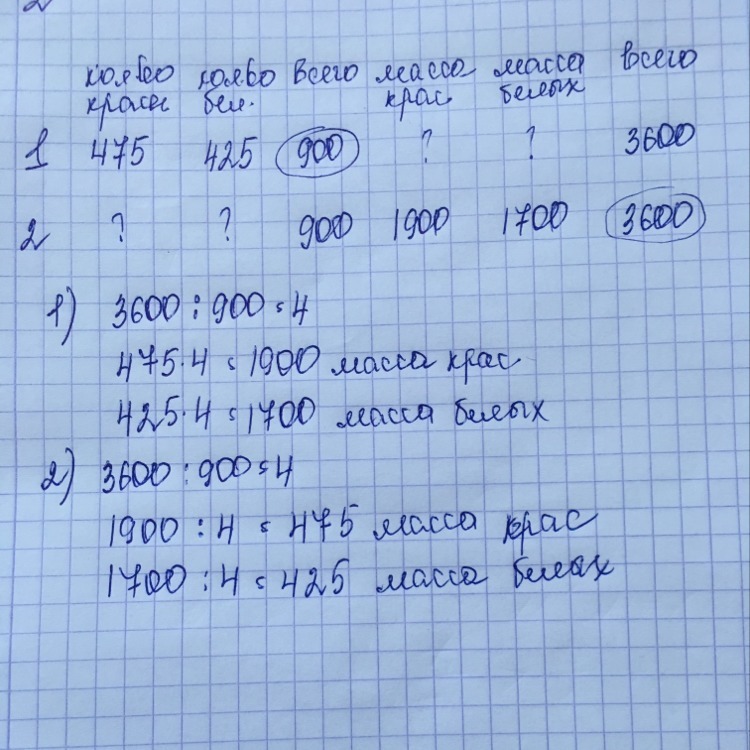 кол-во кол-во всего масса масса всего
красн бел. крас белых
1 475 425 900 ? ? 3600
2 ? ? 900 1900 1700 3600
1) 3600 : 900 = 4
475 · 4 = 1900 масса крас
425 · 4 = 1700 масса белых
2) 3600 : 900 = 4
1900 : 4 = 475 масса крас
1700 : 4 = 425 масса белых